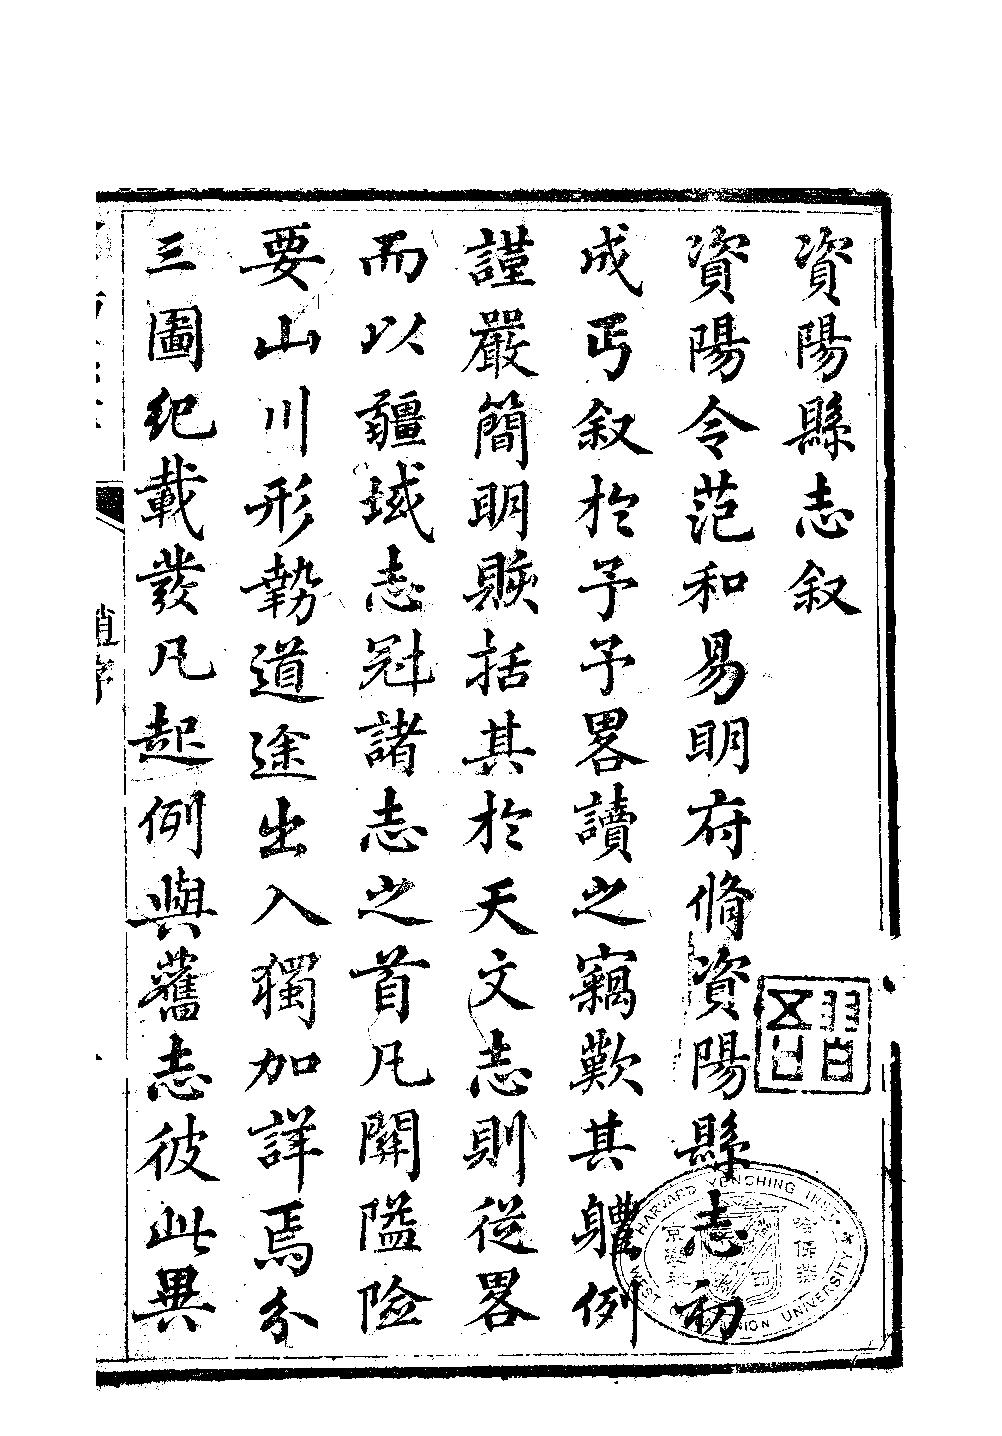 資陽縣志叙
資陽令范和昜明府脩資陽縣志初
成丐叙於予予畧讀之竊歎其軆例
謹嚴簡明賅括其於天文志則從畧
而以疆域志冠諸志之首凡關隘險
要山川形勢道途出入獨加詳焉分
三圖紀載發凡起例與舊志彼此異
趙序
HARVARD YENCHING INST
UNIVERSITY